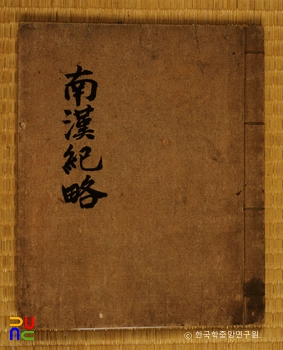 南漢紀略
© 한국학중앙연구원